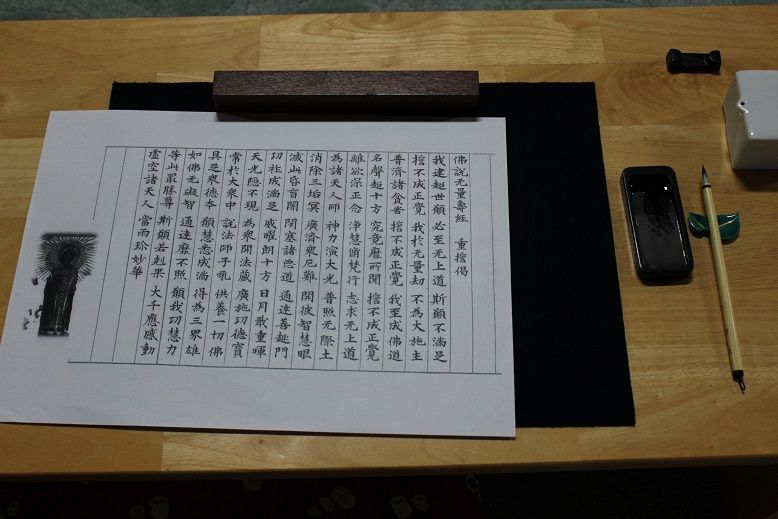 佛説无量壽經 重誓偈
我建超世願 必至无上道 斯願不滿足
誓不成正覺 我於无量劫 不為大施主
普濟諸貧苦 誓不成正覺 我至成佛道
名聲超十方 究竟靡所聞 誓不成正覺
離欲深正念 淨慧脩梵行 志求无上道
為諸天人師 神力演大光 普照无際土
消除三垢冥 廣濟衆厄難 開彼智慧眼
滅此昏盲闇 閇塞諸惡道 通達善趣門
功祚成滿足 威曜朗十方 日月戢重暉
天光隠不現 為衆開法藏 廣施功德寶
常於大衆中 説法師子吼 供養一切佛
具足衆德本 願慧悉成滿 得為三界雄
如佛无礙智 通達靡不照 願我功慧力
等此最勝尊 斯願若剋果 大千應感動
虚空諸天人 當雨珎妙華